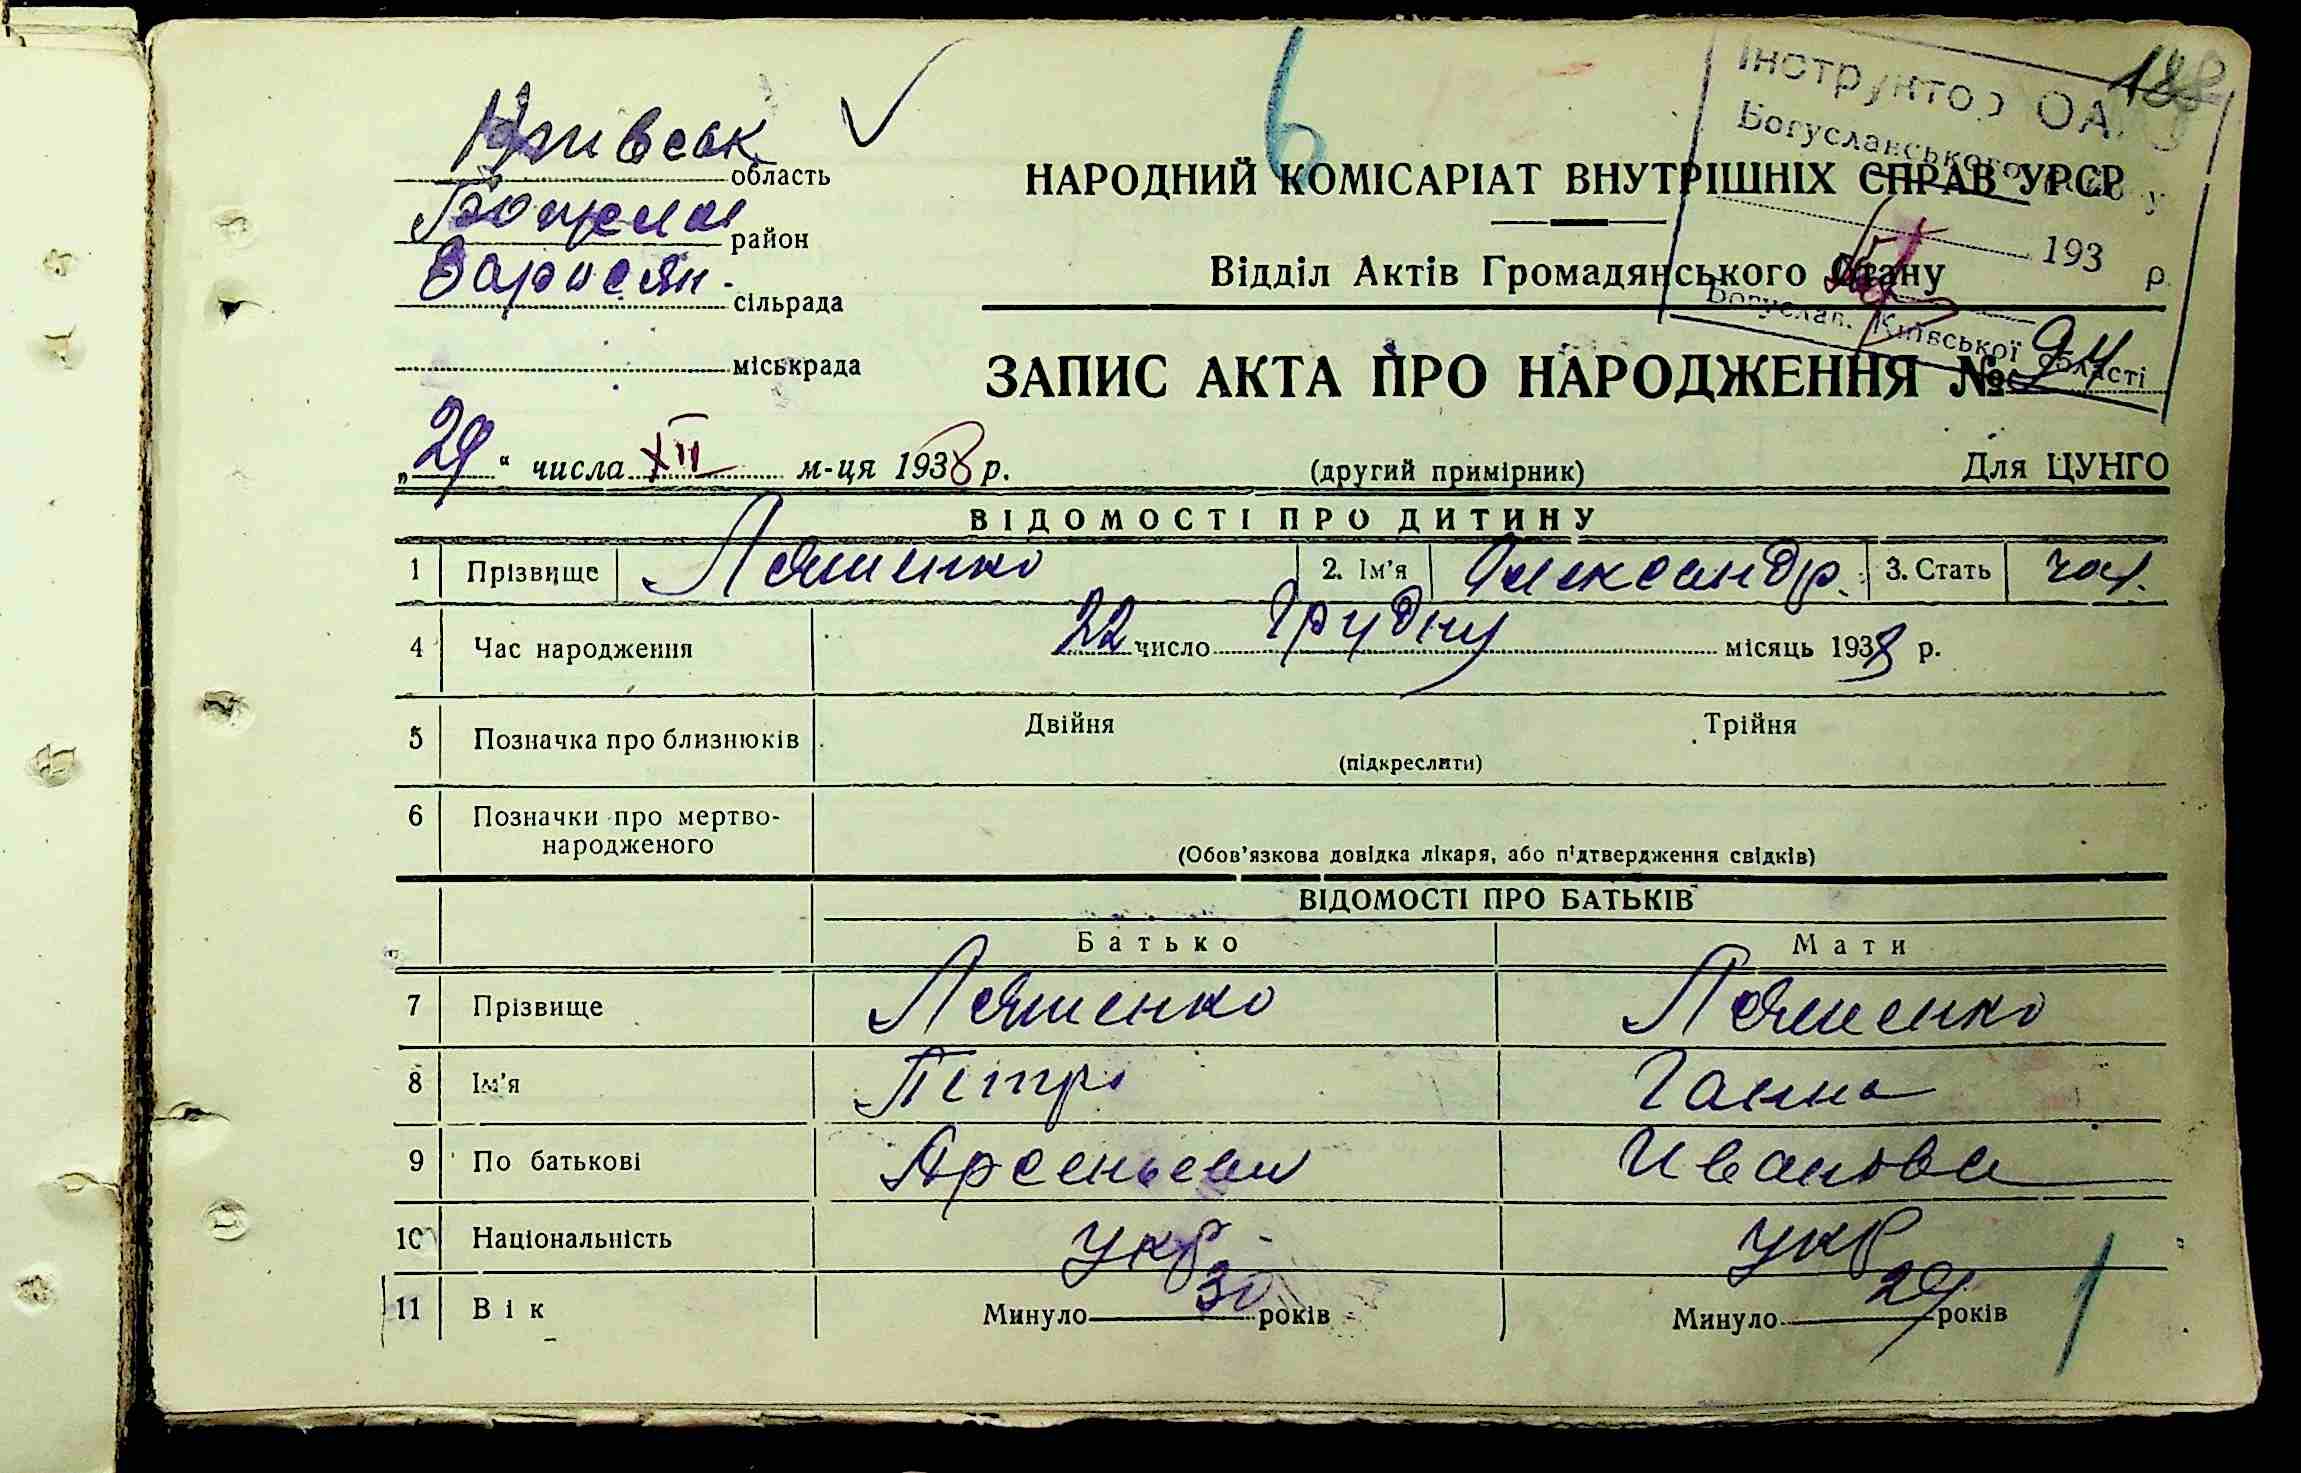 6
188
Інструктор ОАГС
Богуславського району
193 р.
Богуслав. Київської області
Київськ область
Богуслав район
Заросян. сільрада
міськрада
НАРОДНИЙ КОМІСАРІАТ ВНУТРІШНІХ СПРАВ УРСР
Відділ Актів Громадянського Стану
ЗАПИС АКТА ПРО НАРОДЖЕННЯ № 94
„29“ числа XII м-ця 1938 р. (другий примірник) Для ЦУНГО
ВІДОМОСТІ ПРО ДИТИНУ
1 Прізвище Ляшенко 2. Ім'я Олександр. 3. Стать чол.
4 Час народження 22 число Грудня місяць 1938 р.
5 Позначка про близнюків Двійня Трійня
(підкреслити)
6 Позначки про мертво-
народженого
(Обов'язкова довідка лікаря, або підтвердження свідків)
ВІДОМОСТІ ПРО БАТЬКІВ
Батько Мати
7 Прізвище Ляшенко Ляшенко
8 Ім'я Петро Ганна
9 По батькові Ивановна
10 Національність Укр. Укр
11 Вік Минуло 30 років Минуло 29 років